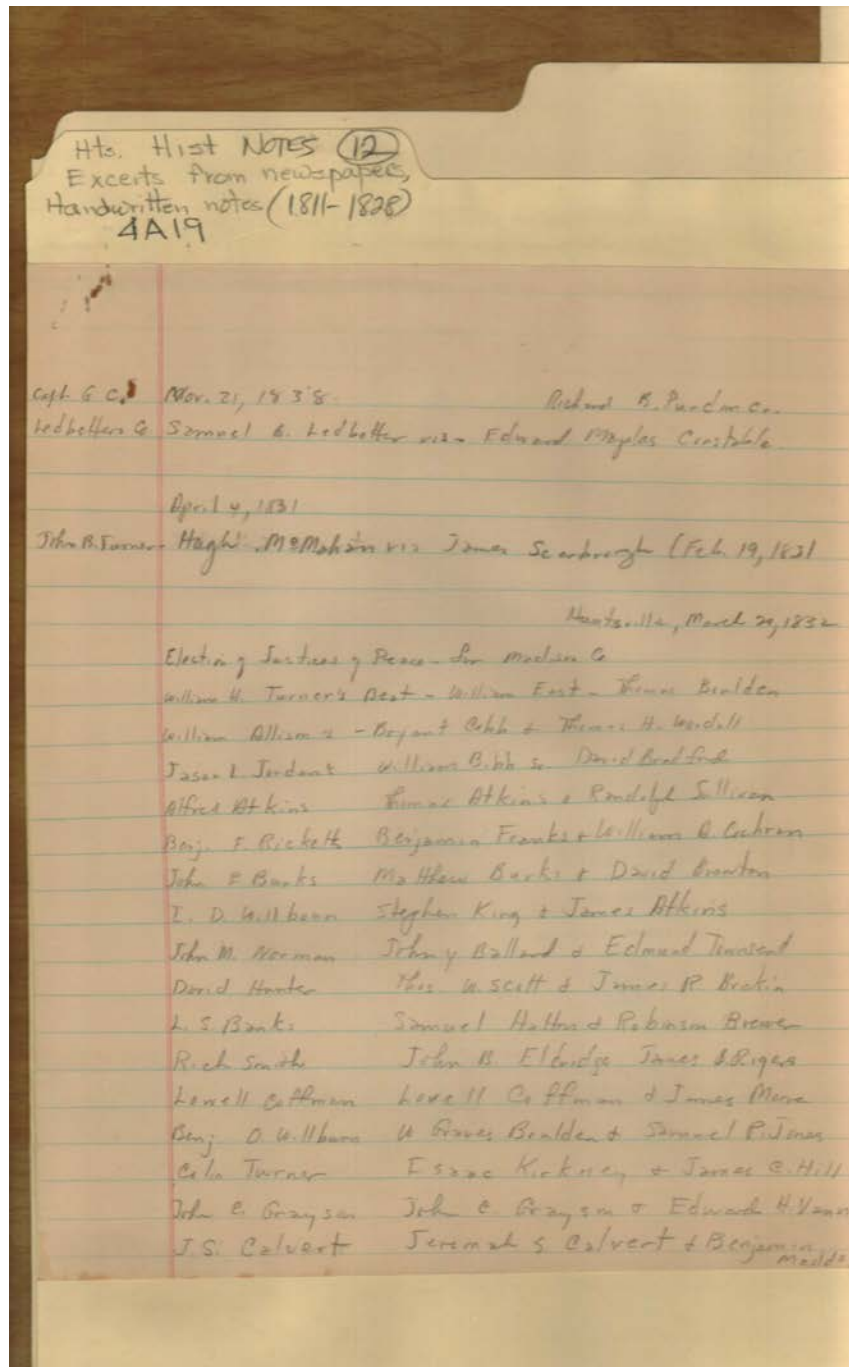 Hts. Hist NOTES (12)
Excerts from newspapers,
Handwritten notes (1811-1828)
4A19
Capt. G C. Nov. 21, 1838 Richard B. Purdom Co.
Ledbetters Co Samuel B. Ledbetter vis- Edward Maples Constable
April 4, 1831
John B. Turner- Hugh McMahan vis James Scarbrough (Feb. 19, 1831
Huntsville, March 29, 1832
Election of Justices of Peace - for Madison Co
William H. Turner's Beat - William East - Thomas Bealden
William Allison's - Bryant Cobb & Thomas H.
Jason L. Jordan's William Bibb Sr David Bradford
Alfred Atkins Thomas Atkins & Randolph Sullivan
Benj. F. Ricketts Benjamin Franks & William B. Cochran
John E Banks Matthew Burks & David
I. D. Willbann Stephen King & James Atkins
John M. Norman John Y Ballard & Edmund Townsend
David Hunter Thos. W. Scott & James R.
L. S. Banks Samuel Hatton & Robinson Brewer
Rich Smith John B. Eldridge James
Lovell Coffman Lovell Coffman & James
Benj O. Willburn W Graves Bealden & Samuel P. Jones
Turner Isaac Kirkney & James C. Hill
John C. Grayson John C. Grayson & Edward H. Vann
J. S. Calvert Jeremah S. Calvert & Benjamin